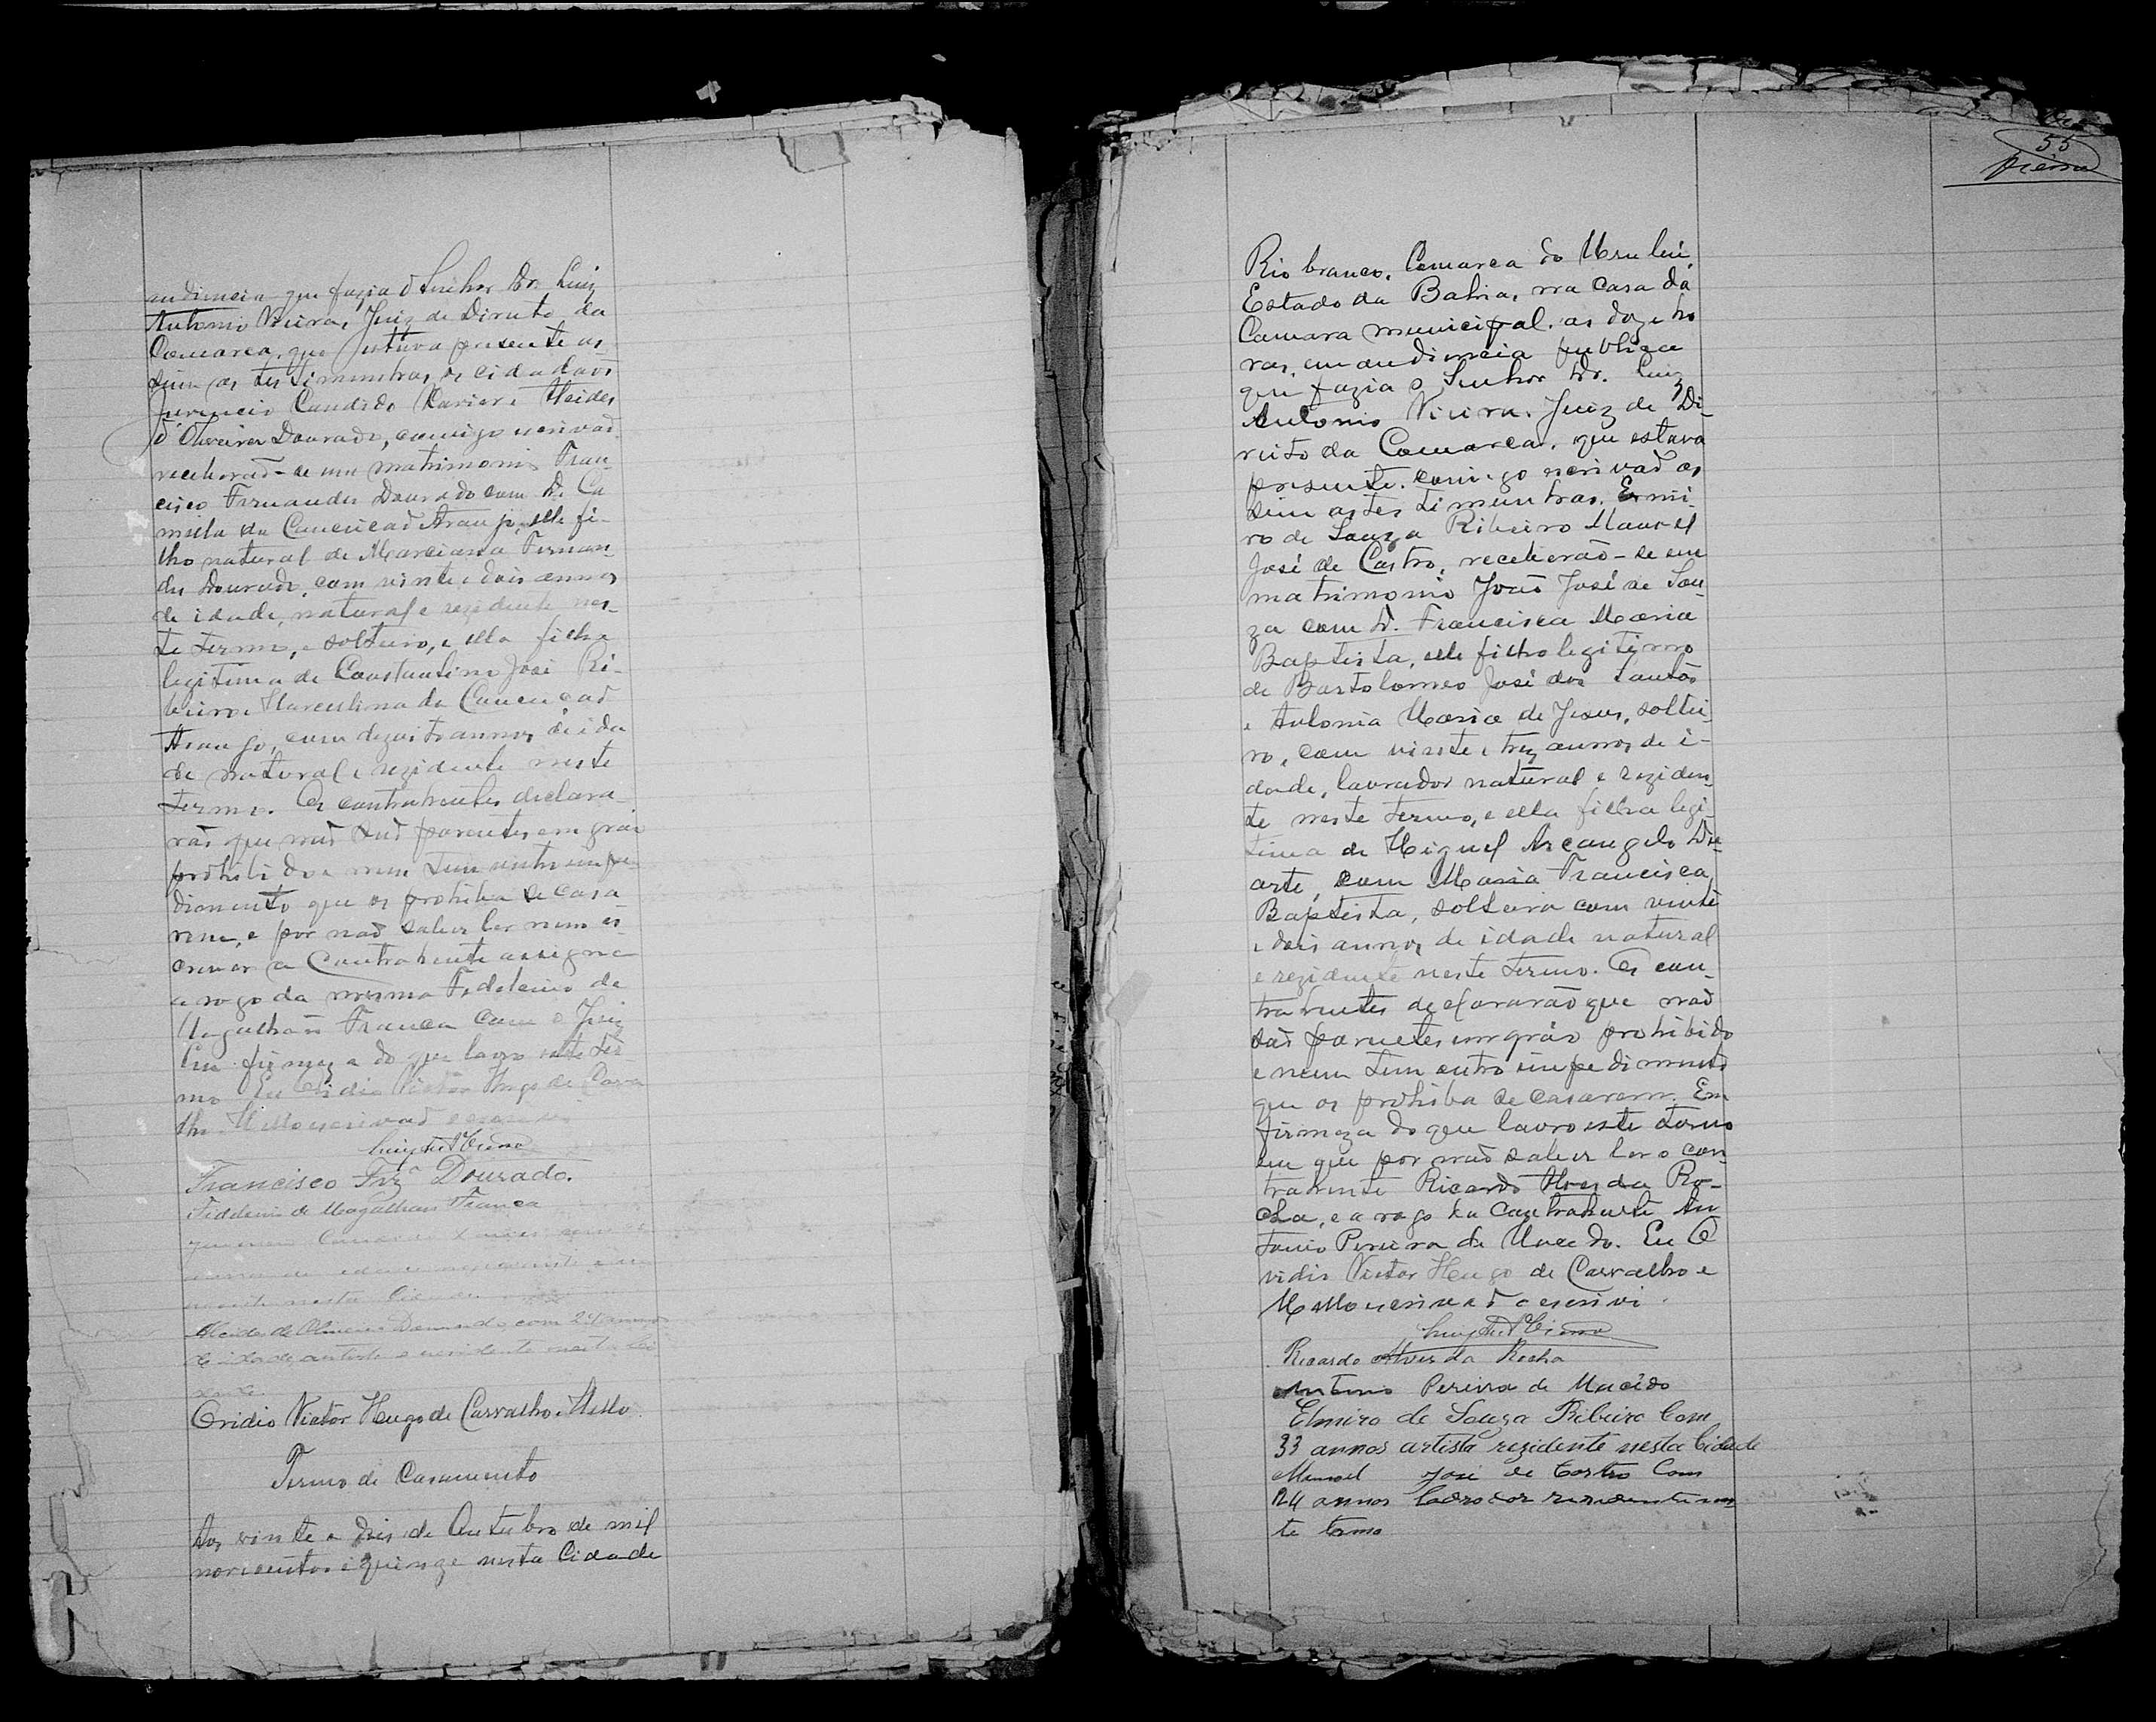 audiencia que fazia o Senhor Dr. Luiz
Antonio Vieira, Juiz de Direito da
Comarca, que estava presente as-
sim as testimunhas, os cidadãos
Juvencio Candido Xavier e Alcides
d'Oliveira Dourado, comigo escrivaõ
receberaõ-se em matrimonio Fran-
cisco Fernandes Dourado com D. Ca
milla da Conceicaõ Araujo, elle fi-
lho natural de Marciana Fernan
des Dourado, com vinte e dois annos
de idade, natural e rezidente nes-
te termo, e solteiro, e ella filha
legitima de Constantino José Ri-
beiro e Marculina da Conceicaõ
Araujo, com dezoito annos de ida
de natural e rezidente neste
termo. Os contrahentes declara
raõ que naõ saõ parentes em gráo
prohibido e nem tem outro impe
dimento que os prohiba de casa
rem, e por naõ saber ler nem es
crever a Contrahente assigna
a rogo da mesma Fidelcino de
Magalhães Franca com o Juiz
Em firmeza do que lavro este ter
mo Eu Ovidio Victor Hugo de Carva
lho Mello escrivaõ escrevi
Luiz Ant Vieira
Francisco Frz Dourado.
Fidelcino de Magalhães Franca
Juvencio Candido Xavier
nesta Cidade
Alcides de Oliveira Dourado, com 24 annos
de idade, artista e residente nesta Ci
dade.
Ovidio Victor Hugo de Carvalho e Mello
Termo de Casamento
Aos vinte e dois de Outubro de mil
novecentos e quinze nesta Cidade
55
Vieira
Rio branco, Comarca do Urubú,
Estado da Bahia, na casa da
Camara municipal, as doze ho
ras, em audiencia publica
que fazia o Senhor Dr. Luiz
Antonio Vieira, Juiz de Di-
reito da Comarca, que estava
presente, comigo escrivaõ as
sim as testimunhas, Ermi-
ro de Souza Ribeiro Manoel
José de Castro, receberão-se em
matrimonio João José de Sou
za com D. Francisca Maria
Baptista, elle filho legitimo
de Bartolomeo José dos Santos
e Antonia Maria de Jesus, soltei-
ro, com vinte e trez annos de i-
dade, lavrador natural e reziden
te neste termo, e ella filha legi
tima de Miguel Arcangelo Du-
arte, com Maria Francisca
Baptista, solteira com vinte
e dois annos de idade natural
e rezidente neste termo. Os con-
trahentes declararão que naõ
saõ parentes em gráo prohibido
e nem tem outro impedimento
que os prohiba de casarem. Em
firmeza do que lavro este termo
em que por naõ saber ler o con-
trahente Ricardo Alves da Ro-
cha, e a rogo da Contrahente An
tonio Pereira de Macedo. Eu O
vidio Victor Hugo de Carvalho e
Mello escrivaõ o escrivi.
Luiz Ant Vieira
Ricardo Alves da Rocha
Antonio Pereira de Macêdo
Elmiro de Souza Ribeiro Com
33 annos artista rezidente nesta Cidade
Manoel José de Castro Com
24 annos lavrador rezidente nes
te termo